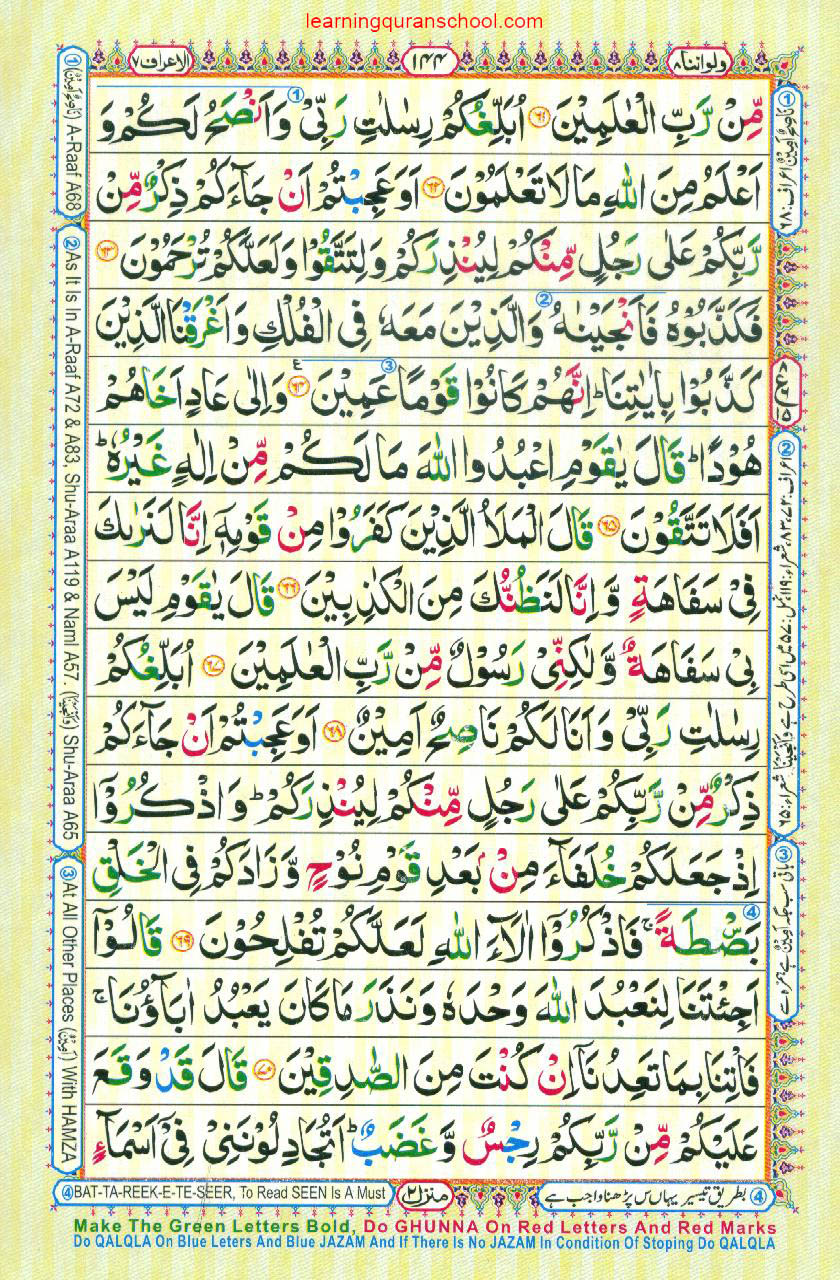 learningquranschool.com
ولواننا ٨
١٤٤
الاعراف ٧
مِّنْ رَّبِّ الْعٰلَمِيْنَ ﴿٦١﴾ اُبَلِّغُكُمْ رِسٰلٰتِ رَبِّيْ وَاَنْصَحُ لَكُمْ وَ
اَعْلَمُ مِنَ اللّٰهِ مَا لَا تَعْلَمُوْنَ ﴿٦٢﴾ اَوَعَجِبْتُمْ اَنْ جَآءَكُمْ ذِكْرٌ مِّنْ
رَّبِّكُمْ عَلٰى رَجُلٍ مِّنْكُمْ لِيُنْذِرَكُمْ وَلِتَتَّقُوْا وَلَعَلَّكُمْ تُرْحَمُوْنَ ﴿٦٣﴾
فَكَذَّبُوْهُ فَاَنْجَيْنٰهُ وَالَّذِيْنَ مَعَهٗ فِي الْفُلْكِ وَاَغْرَقْنَا الَّذِيْنَ
كَذَّبُوْا بِاٰيٰتِنَا ؕ اِنَّهُمْ كَانُوْا قَوْمًا عَمِيْنَ ﴿٦٤﴾ ع وَاِلٰى عَادٍ اَخَاهُمْ
هُوْدًا ؕ قَالَ يٰقَوْمِ اعْبُدُوا اللّٰهَ مَا لَكُمْ مِّنْ اِلٰهٍ غَيْرُهٗ ؕ
اَفَلَا تَتَّقُوْنَ ﴿٦٥﴾ قَالَ الْمَلَاُ الَّذِيْنَ كَفَرُوْا مِنْ قَوْمِهٖٓ اِنَّا لَنَرٰىكَ
فِيْ سَفَاهَةٍ وَّاِنَّا لَنَظُنُّكَ مِنَ الْكٰذِبِيْنَ ﴿٦٦﴾ قَالَ يٰقَوْمِ لَيْسَ
بِيْ سَفَاهَةٌ وَّلٰكِنِّيْ رَسُوْلٌ مِّنْ رَّبِّ الْعٰلَمِيْنَ ﴿٦٧﴾ اُبَلِّغُكُمْ
رِسٰلٰتِ رَبِّيْ وَاَنَا لَكُمْ نَاصِحٌ اَمِيْنٌ ﴿٦٨﴾ اَوَعَجِبْتُمْ اَنْ جَآءَكُمْ
ذِكْرٌ مِّنْ رَّبِّكُمْ عَلٰى رَجُلٍ مِّنْكُمْ لِيُنْذِرَكُمْ ؕ وَاذْكُرُوْٓا
اِذْ جَعَلَكُمْ خُلَفَآءَ مِنْۢ بَعْدِ قَوْمِ نُوْحٍ وَّزَادَكُمْ فِي الْخَلْقِ
بَصْۜطَةً ۚ فَاذْكُرُوْٓا اٰلَآءَ اللّٰهِ لَعَلَّكُمْ تُفْلِحُوْنَ ﴿٦٩﴾ قَالُوْٓا
اَجِئْتَنَا لِنَعْبُدَ اللّٰهَ وَحْدَهٗ وَنَذَرَ مَا كَانَ يَعْبُدُ اٰبَآؤُنَا ۚ
فَاْتِنَا بِمَا تَعِدُنَآ اِنْ كُنْتَ مِنَ الصّٰدِقِيْنَ ﴿٧٠﴾ قَالَ قَدْ وَقَعَ
عَلَيْكُمْ مِّنْ رَّبِّكُمْ رِجْسٌ وَّغَضَبٌ ؕ اَتُجَادِلُوْنَنِيْ فِيْٓ اَسْمَآءٍ
① (نَاصِحٌ اَمِيْنٌ) A-Raaf A68
② As It Is In A-Raaf A72 & A83, Shu-Araa A119 & Naml A57. (وَاَنْجَيْنَا) Shu-Araa A65
③ At All Other Places (اٰمِيْنَ) With HAMZA
① نَاصِحٌ اَمِيْنٌ اعراف: ٦٨
④ بطریق تیسیر یہاں س پڑھنا واجب ہے
منزل ٢
④ BAT-TA-REEK-E-TE-SEER, To Read SEEN Is A Must
Make The Green Letters Bold, Do GHUNNA On Red Letters And Red Marks
Do QALQLA On Blue Leters And Blue JAZAM And If There Is No JAZAM In Condition Of Stoping Do QALQLA